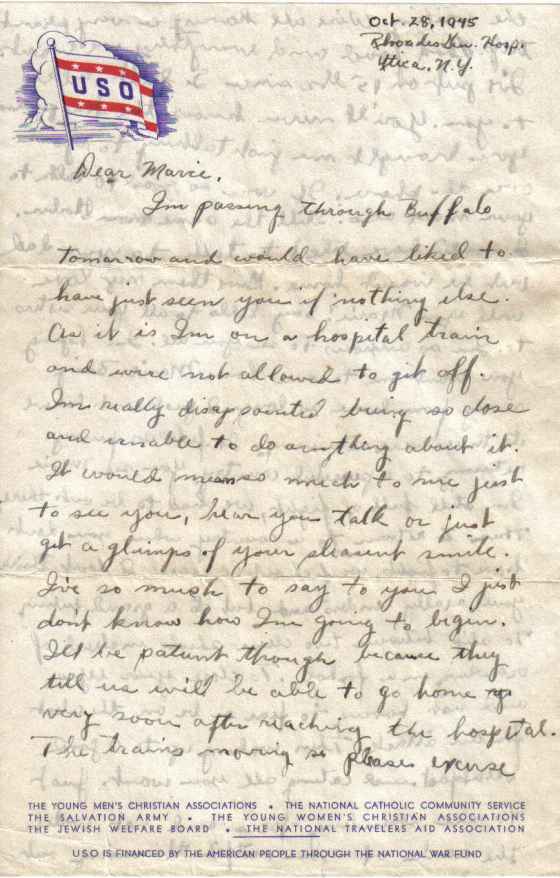 Oct. 28, 1945
Rhoades Gen. Hosp.
Utica, N.Y.
USO
Dear Marie,
Im passing through Buffalo
tomorrow and would have liked to
have just seen you if nothing else.
As it is Im on a hospital train
and wire not allowed to git off.
Im really disappointed being so close
and unable to do anything about it.
It would mean so much to me just
to see you, hear you talk or just
get a glimps of your pleasent smile.
I've so much to say to you I just
dont know how Im going to begin.
Ill be patient though because they
till us will be able to go home
very soon after reaching the hospital.
The trains moving so please excuse
THE YOUNG MEN'S CHRISTIAN ASSOCIATIONS • THE NATIONAL CATHOLIC COMMUNITY SERVICE
THE SALVATION ARMY • THE YOUNG WOMEN'S CHRISTIAN ASSOCIATIONS
THE JEWISH WELFARE BOARD • THE NATIONAL TRAVELERS AID ASSOCIATION
USO IS FINANCED BY THE AMERICAN PEOPLE THROUGH THE NATIONAL WAR FUND